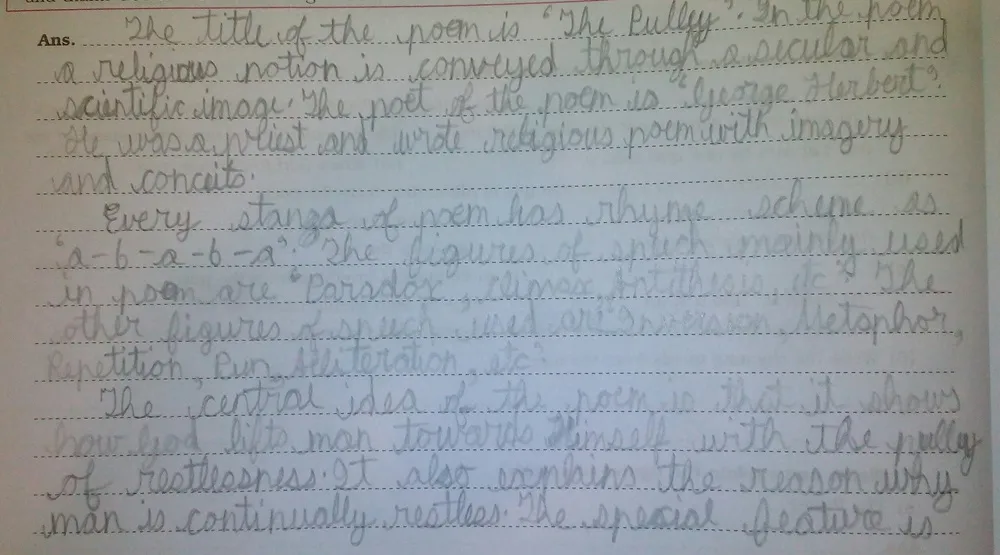 Ans. The title of the poem is 'The Pulley'. In the poem
a religious notion is conveyed through a secular and
scientific image. The poet of the poem is "George Herbert".
He was a priest and wrote religious poem with imagery
and conceits.
Every stanza of poem has rhyme scheme as
'a-b-a-b-a'. The figures of speech mainly used
in poem are "Paradox, Climax, Antithesis, etc". The
other figures of speech used are Inversion, Metaphor,
Repetition, Pun, Alliteration, etc.
The central idea of the poem is that it shows
how God lifts man towards Himself with the pulley
of restlessness. It also explains the reason why
man is continually restless. The special feature is